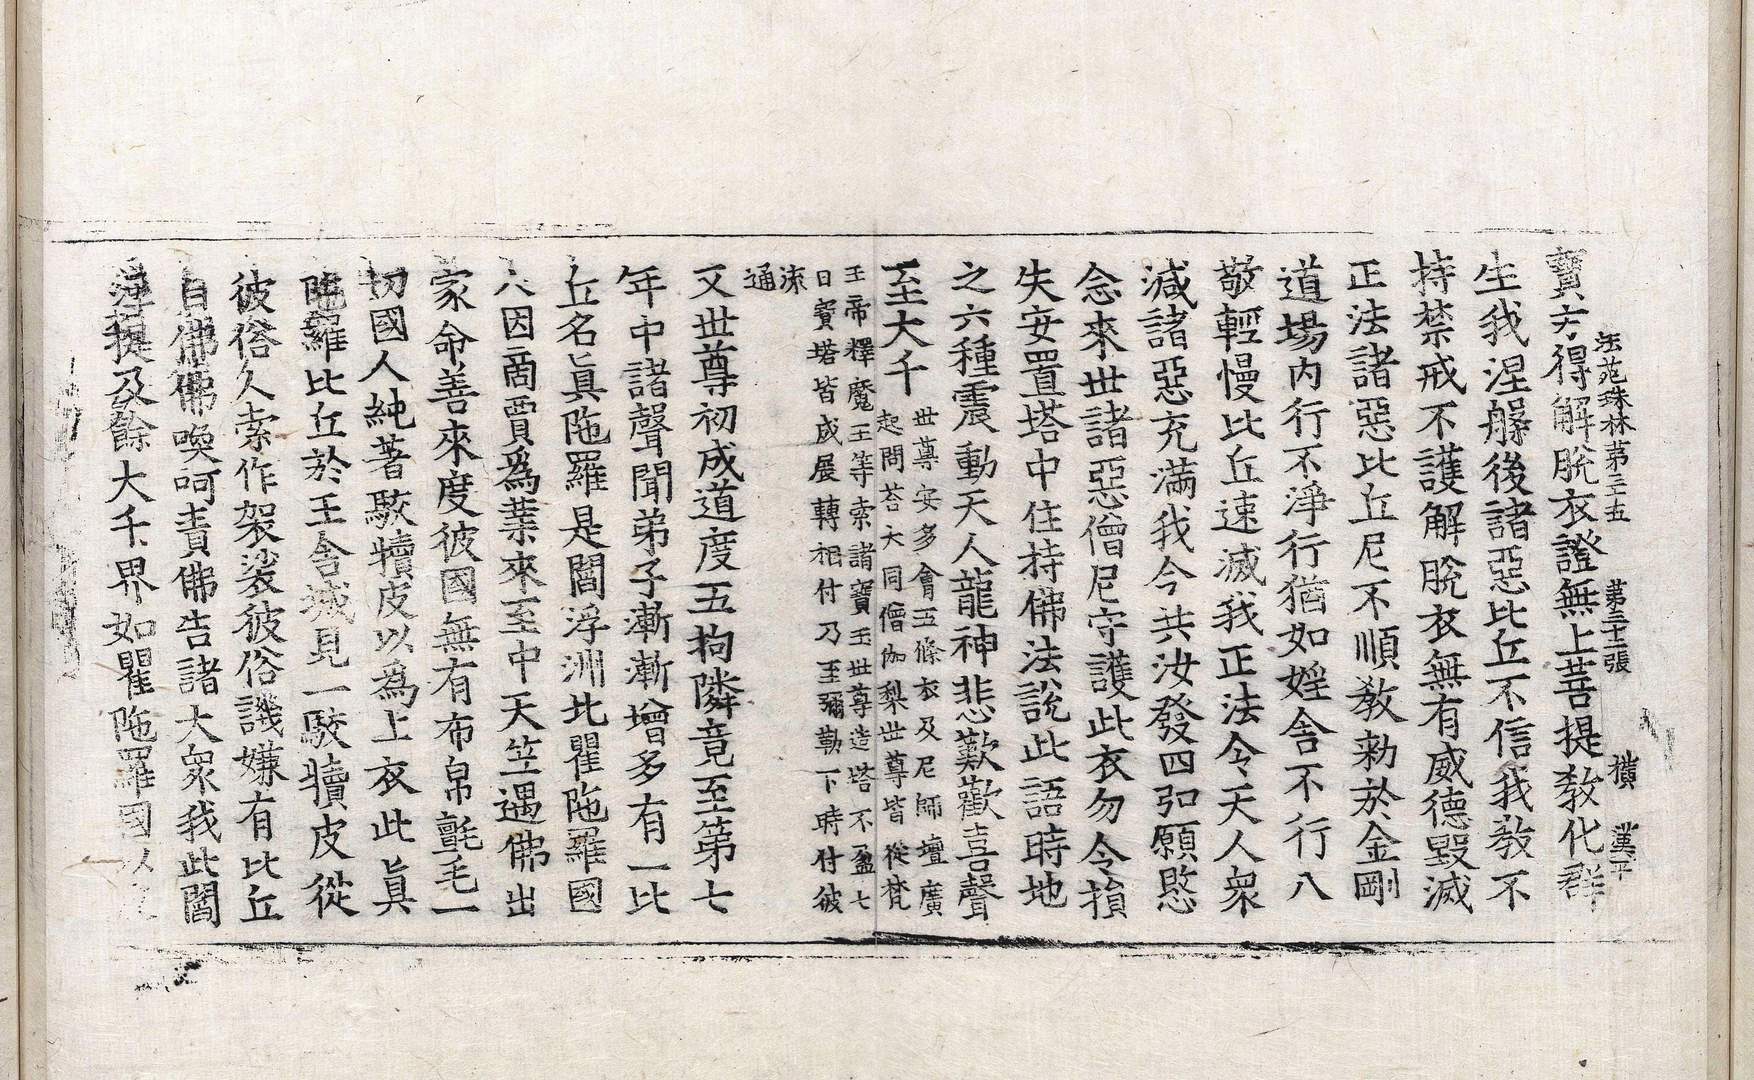 法苑珠林第三十五　第三十二張　橫　漢平
寶亦得解脫衣證無上菩提敎化群
生我涅槃後諸惡比丘不信我敎不
持禁戒不護解脫衣無有威德毀滅
正法諸惡比丘尼不順敎勅於金剛
道場內行不淨行猶如婬舍不行八
敬輕慢比丘速滅我正法令天人衆
減諸惡充滿我今共汝發四弘願愍
念來世諸惡僧尼守護此衣勿令損
失安置塔中住持佛法說此語時地
之六種震動天人龍神悲歎歡喜聲
至大千
世尊安多會五條衣及尼師壇廣
起問荅大同僧伽梨世尊皆從梵
王帝釋魔王等索諸寶玉世尊造塔不盈七
日寶塔皆成展轉相付乃至彌勒下時付彼
流
通
又世尊初成道度五拘隣竟至第七
年中諸聲聞弟子漸漸增多有一比
丘名眞陁羅是閻浮洲北瞿陁羅國
人因商賈爲業來至中天笁遇佛出
家命善來度彼國無有布帛氎毛一
切國人純著駮犢皮以爲上衣此眞
陁羅比丘於王舍城見一駮犢皮從
彼俗人索作袈裟彼俗譏嫌有比丘
白佛佛喚呵責佛告諸大衆我此閻
浮提及餘大千界如瞿陁羅國以